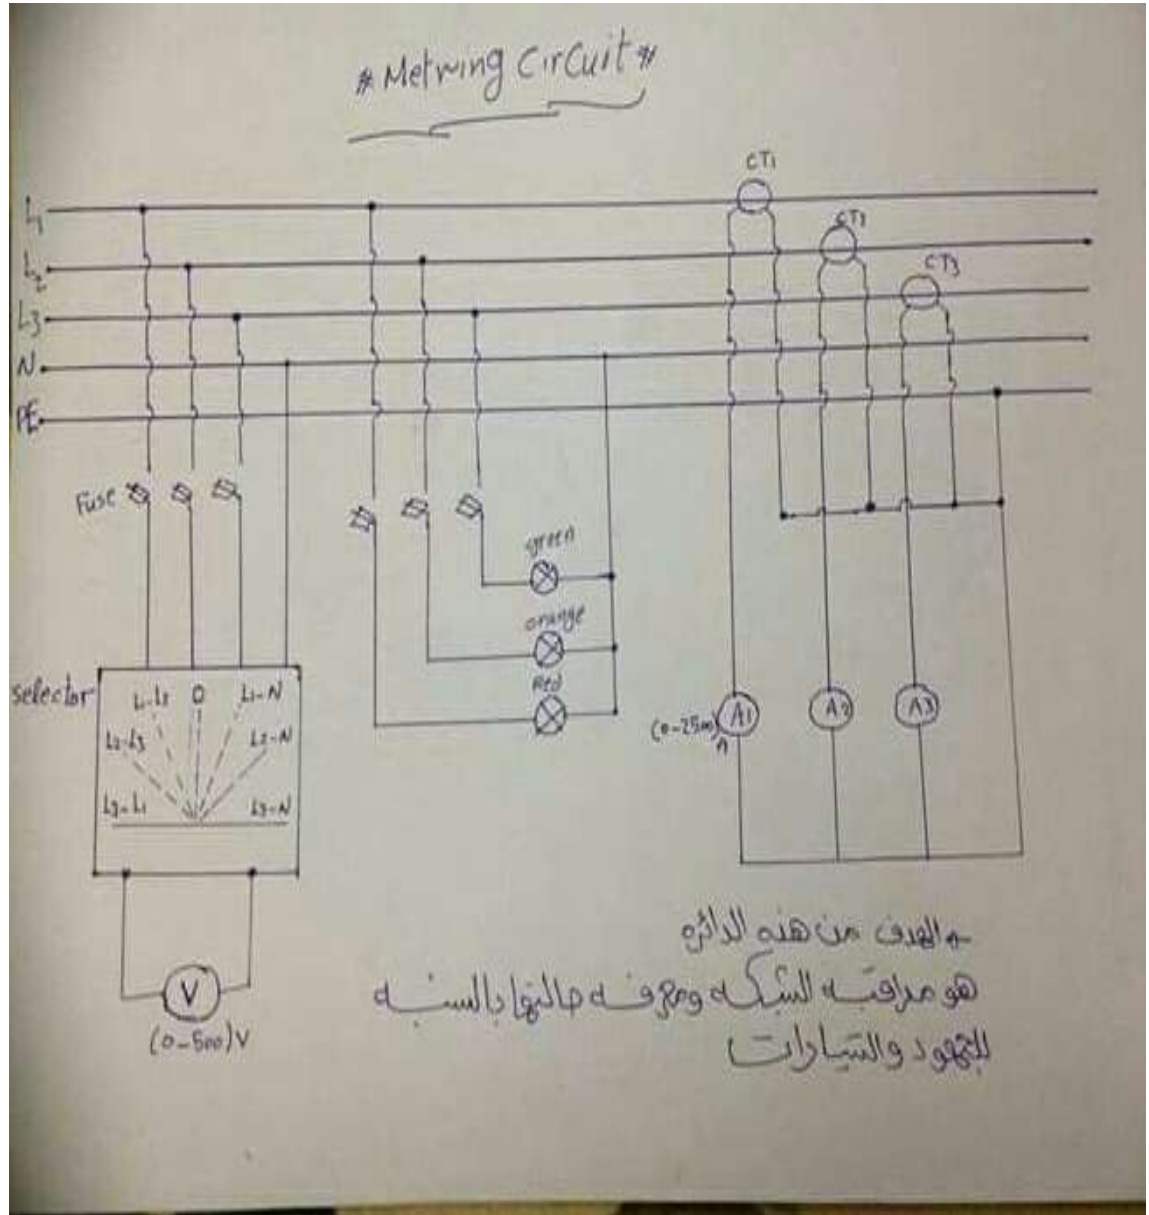 # Metering Circuit #
CT1
CT2
CT3
L1
L2
L3
N
PE
Fuse
green
orange
Red
selector
L1-L2 0 L1-N
L2-L3 L2-N
L3-L1 L3-N
(0-2500)A A1 A2 A3
V
(0-500)V
الهدف من هذه الدائره
هو مراقبه الشبكه ومعرفه حالتها بالنسبه
للجهود والتيارات